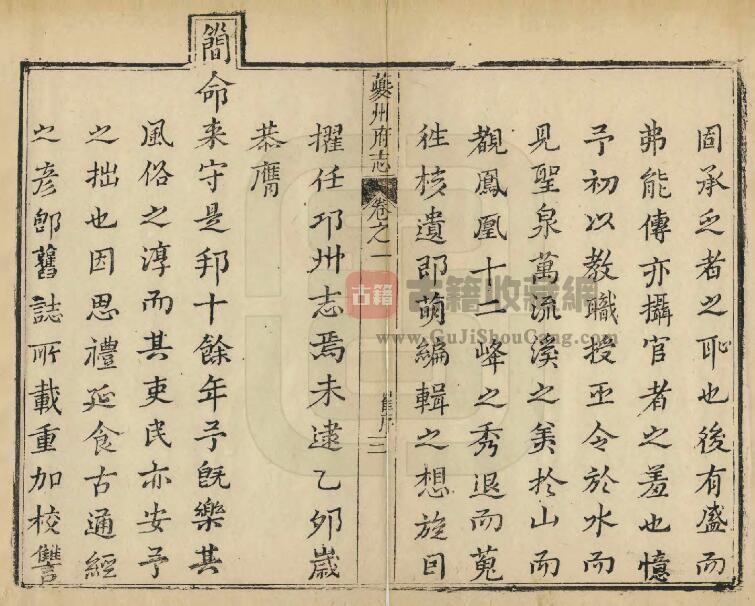 固承乏者之恥也後有盛而
弗能傳亦攝官者之羞也憶
予初以教職授巫令於水而
見聖泉萬流溪之美於山而
觀鳳凰十二峰之秀退而蒐
徃核遺即萌編輯之想旋囙
夔州府志
卷之一
崔序
三
擢任邛州志焉未逮乙夘嵗
恭膺
簡命来守是邦十餘年予旣樂其
風俗之淳而其吏民亦安予
之拙也因思禮延食古通經
之彦郎舊誌所載重加校讐
古籍
古籍收藏網
www.GuJiShouCang.com